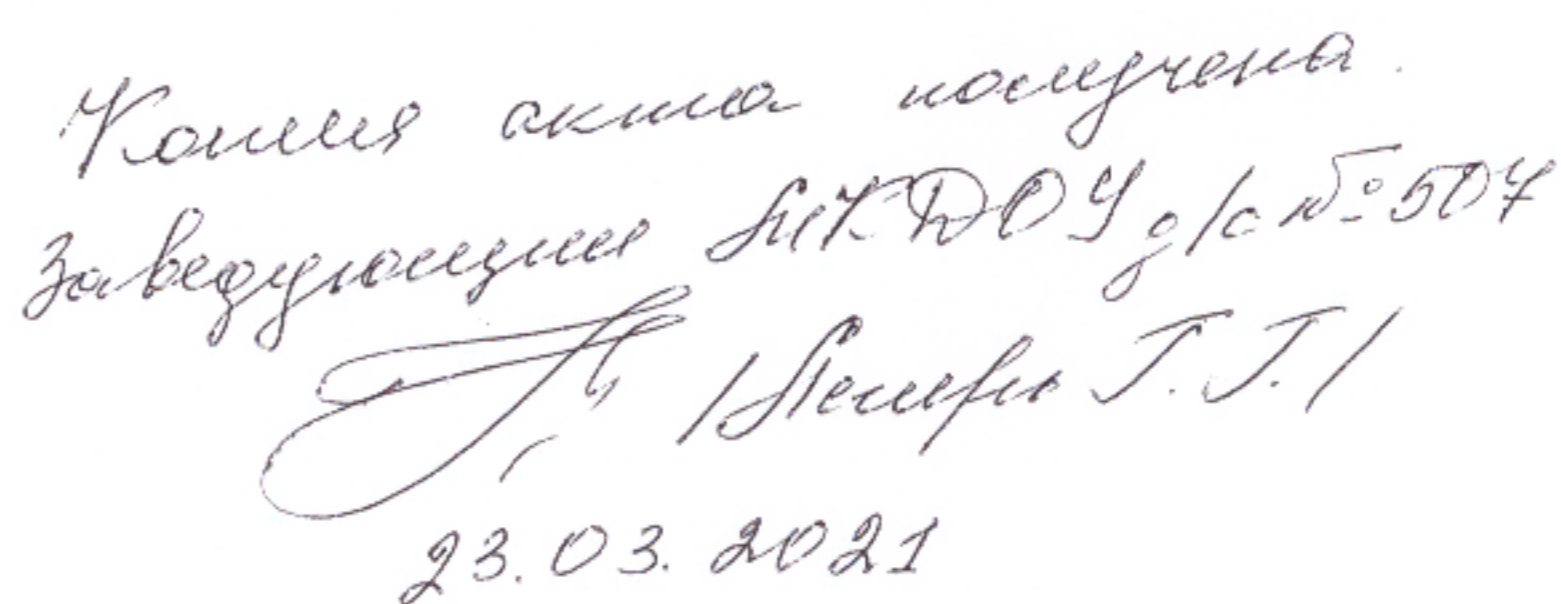 Копия акта получена.
Заведующий МКДОУ д/с № 507
/ Г. Г. /
23.03.2021